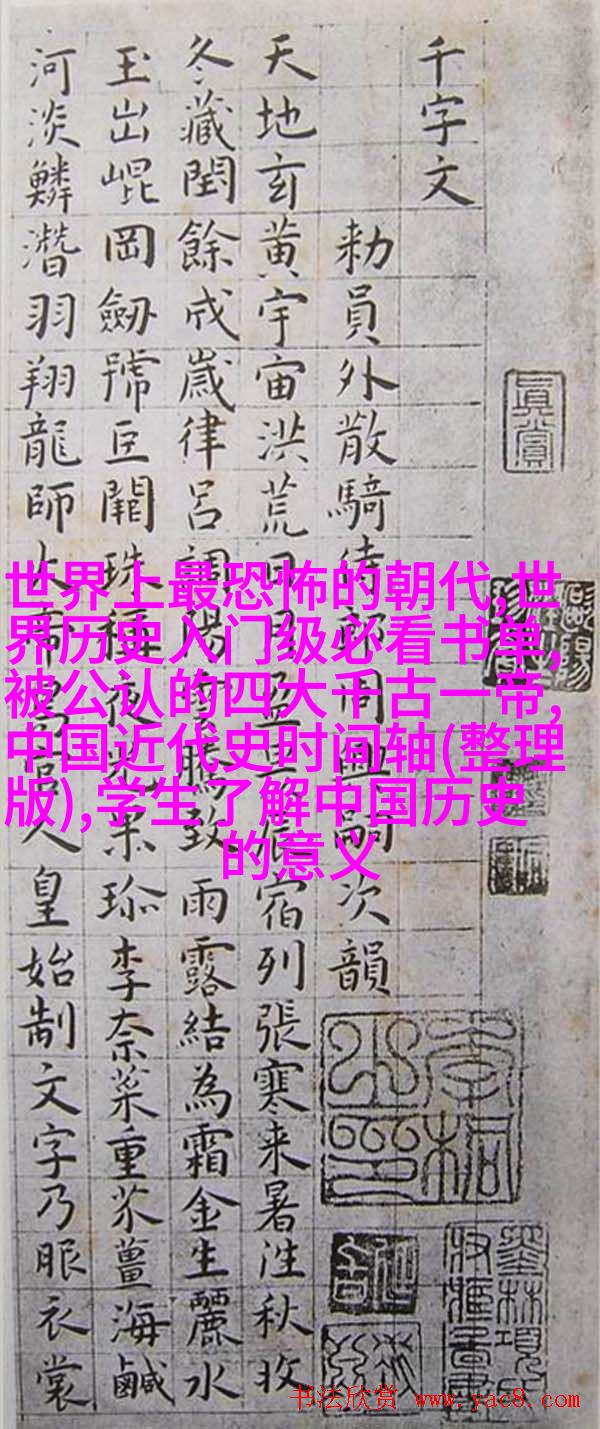 千字文
勑員外散騎侍郎周興嗣次韻
天地玄黃宇宙洪荒日月盈昃辰宿列張寒来暑往秋收
冬藏閏餘成歲律呂調陽雲騰致雨露結為霜金生麗水
玉出崐岡劒號巨闕珠稱夜光果珎李柰菜重芥薑海鹹
河淡鱗潛羽翔龍師火帝鳥官人皇始制文字乃服衣裳
眞賞
世界上最恐怖的朝代,世
界历史入门级必看书单,
被公认的四大千古一帝,
中国近代史时间轴(整理
版),学生了解中国历史
的意义
书法欣赏 www.yac8.com